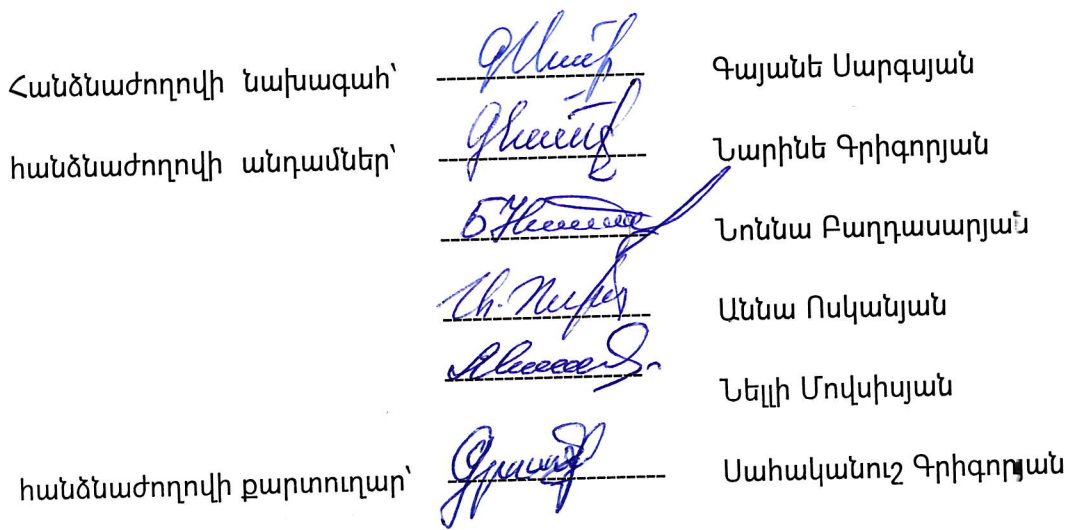 Հանձնաժողովի նախագահ՝ Գայանե Սարգսյան
հանձնաժողովի անդամներ՝ Նարինե Գրիգորյան
Նոննա Բաղդասարյան
Աննա Ոսկանյան
Նելլի Մովսիսյան
հանձնաժողովի քարտուղար՝ Սահականուշ Գրիգորյան